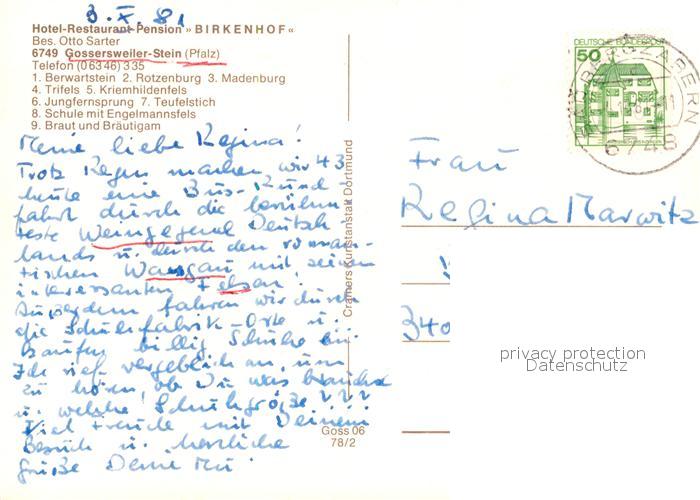 3.X.81
Hotel-Restaurant-Pension »BIRKENHOF«
Bes. Otto Sarter
6749 Gossersweiler-Stein (Pfalz)
Telefon (06346) 335
1. Berwartstein 2. Rotzenburg 3. Madenburg
4. Trifels 5. Kriemhildenfels
6. Jungfernsprung 7. Teufelstich
8. Schule mit Engelmannsfels
9. Braut und Bräutigam
Meine liebe Regina!
Trotz Regen machen wir 43
heute eine Bus-Rund-
fahrt durch die berühm-
teste Weingegend Deutsch
lands u. durch den roman-
tischen Wasgau mit seinen
interessanten Felsen!
Außerdem fahren wir durch
die Schuhfabrik-Orte u.
kaufen billig Schuhe ein
Ich rief vergeblich an, um
zu hören, ob Du was brauchst
u. welche Schuhgröße???
Viel Freude mit Deinem
Besuch u. herzliche
Grüße Deine
Cramers Kunstanstalt Dortmund
Goss 06
78/2
DEUTSCHE BUNDESPOST
50
BAD BERGZABERN
6748
Frau
Regina Marwitz
340
privacy protection
Datenschutz